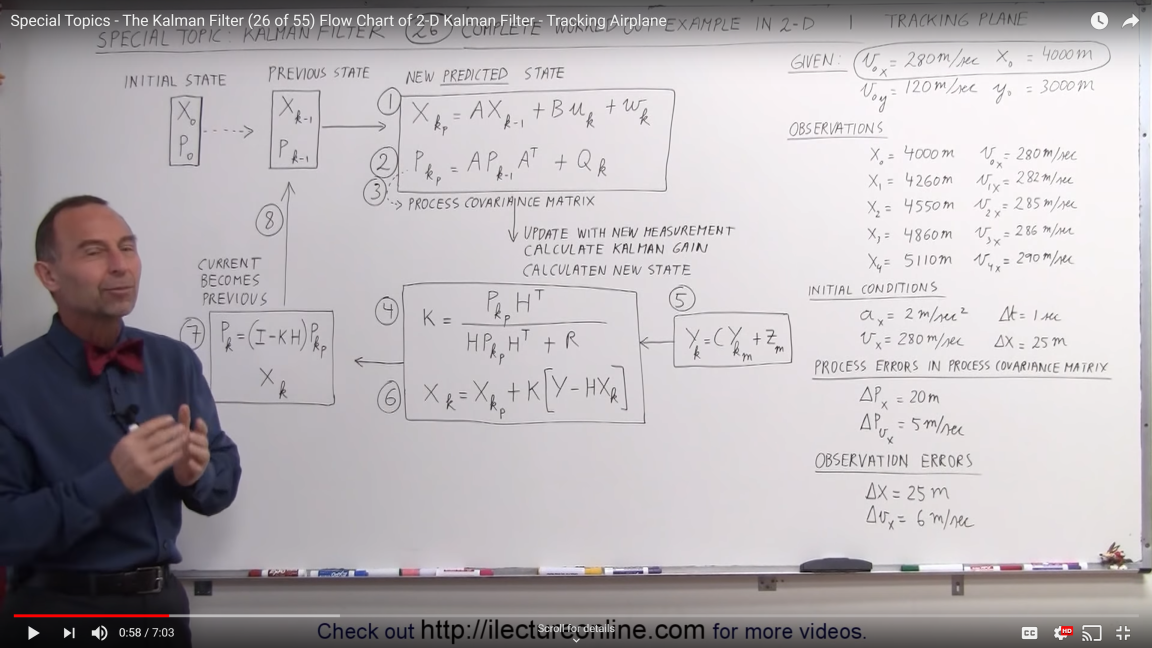 Special Topics - The Kalman Filter (26 of 55) Flow Chart of 2-D Kalman Filter - Tracking Airplane
SPECIAL TOPIC: KALMAN FILTER (26) COMPLETE WORKED OUT EXAMPLE IN 2-D | TRACKING PLANE
INITIAL STATE
X₀
P₀
PREVIOUS STATE
Xₖ₋₁
Pₖ₋₁
NEW PREDICTED STATE
① X_kₚ = AXₖ₋₁ + Buₖ + wₖ
② P_kₚ = APₖ₋₁Aᵀ + Qₖ
③ PROCESS COVARIANCE MATRIX
UPDATE WITH NEW MEASUREMENT
CALCULATE KALMAN GAIN
CALCULATEN NEW STATE
④ K = P_kₚHᵀ / HP_kₚHᵀ + R
⑤ Yₖ = CY_kₘ + Zₘ
⑥ Xₖ = X_kₚ + K[Y - HXₖ]
⑦ Pₖ = (I - KH)P_kₚ
Xₖ
⑧
CURRENT
BECOMES
PREVIOUS
GIVEN: v₀ₓ = 280 m/sec X₀ = 4000 m
v₀y = 120 m/sec y₀ = 3000 m
OBSERVATIONS
X₀ = 4000 m v₀ₓ = 280 m/sec
X₁ = 4260 m v₁ₓ = 282 m/sec
X₂ = 4550 m v₂ₓ = 285 m/sec
X₃ = 4860 m v₃ₓ = 286 m/sec
X₄ = 5110 m v₄ₓ = 290 m/sec
INITIAL CONDITIONS
aₓ = 2 m/sec² Δt = 1 sec
vₓ = 280 m/sec ΔX = 25 m
PROCESS ERRORS IN PROCESS COVARIANCE MATRIX
ΔPₓ = 20 m
ΔP_vₓ = 5 m/sec
OBSERVATION ERRORS
ΔX = 25 m
Δvₓ = 6 m/sec
Check out http://ilectureonline.com for more videos.
Scroll for details
0:58 / 7:03
CC
HD